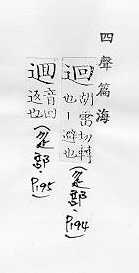 四聲篇海
迴
胡雷切轉
也丨避也
(辵部, P194)
音回
返也
(辵部, P195)